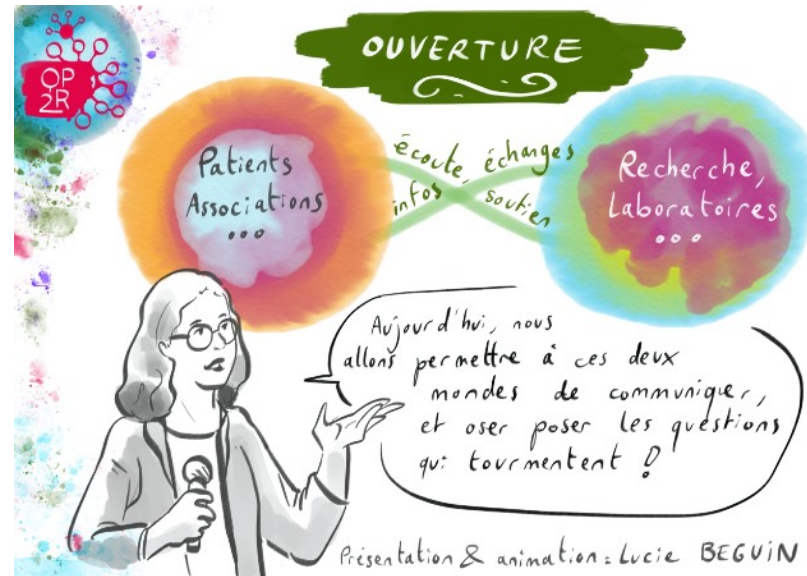 OP
2R
OUVERTURE
Patients
Associations
...
écoute, échanges
infos, soutien
Recherche,
Laboratoires
...
Aujourd'hui, nous
allons permettre à ces deux
mondes de communiquer,
et oser poser les questions
qui tourmentent !
Présentation & animation : Lucie BEGUIN